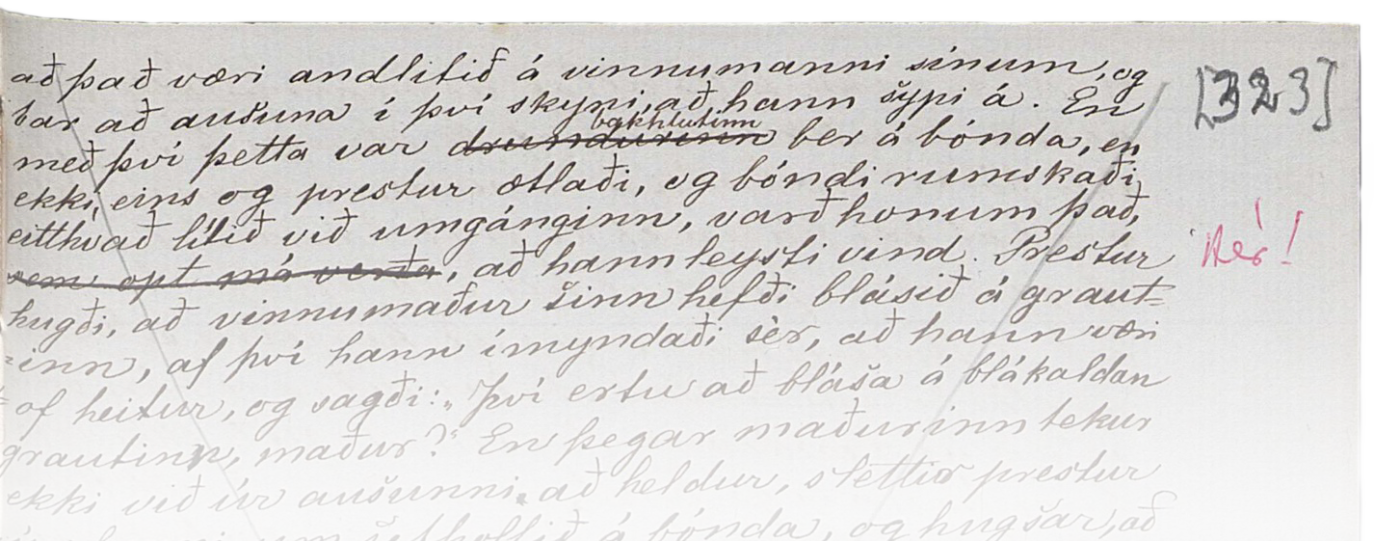 að það væri andlitið á vinnumanni sínum, og [323]
bar að ausuna í því skyni, að hann sypi á. En
bakhlutinn
með því þetta var drundurinn ber á bónda, en
ekki, eins og prestur ætlaði, og bóndi rumskaði
eitthvað lítið við umgánginn, varð honum það,
Hér!
sem opt má verða, að hann leysti vind. Prestur
hugði, að vinnumaður sinn hefði blásið á graut=
=inn, af því hann ímyndaði sèr, að hann væri
of heitur, og sagði: „Því ertu að blása á blákaldan
grautinn, maður?“ En þegar maðurinn tekur
ekki við úr ausunni að heldur, slettir prestur
á bónda, og hugsar, að